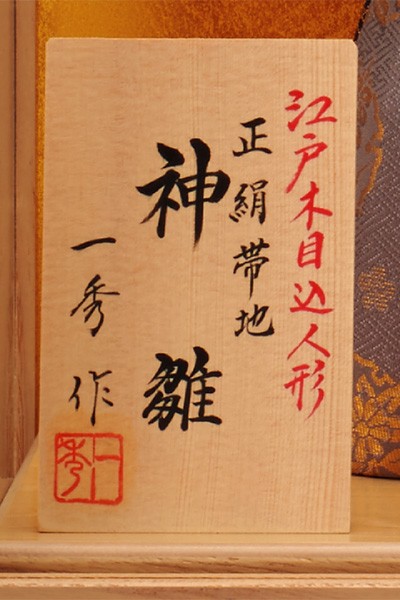 江戸木目込人形
正絹帯地
神雛
一秀作
一秀